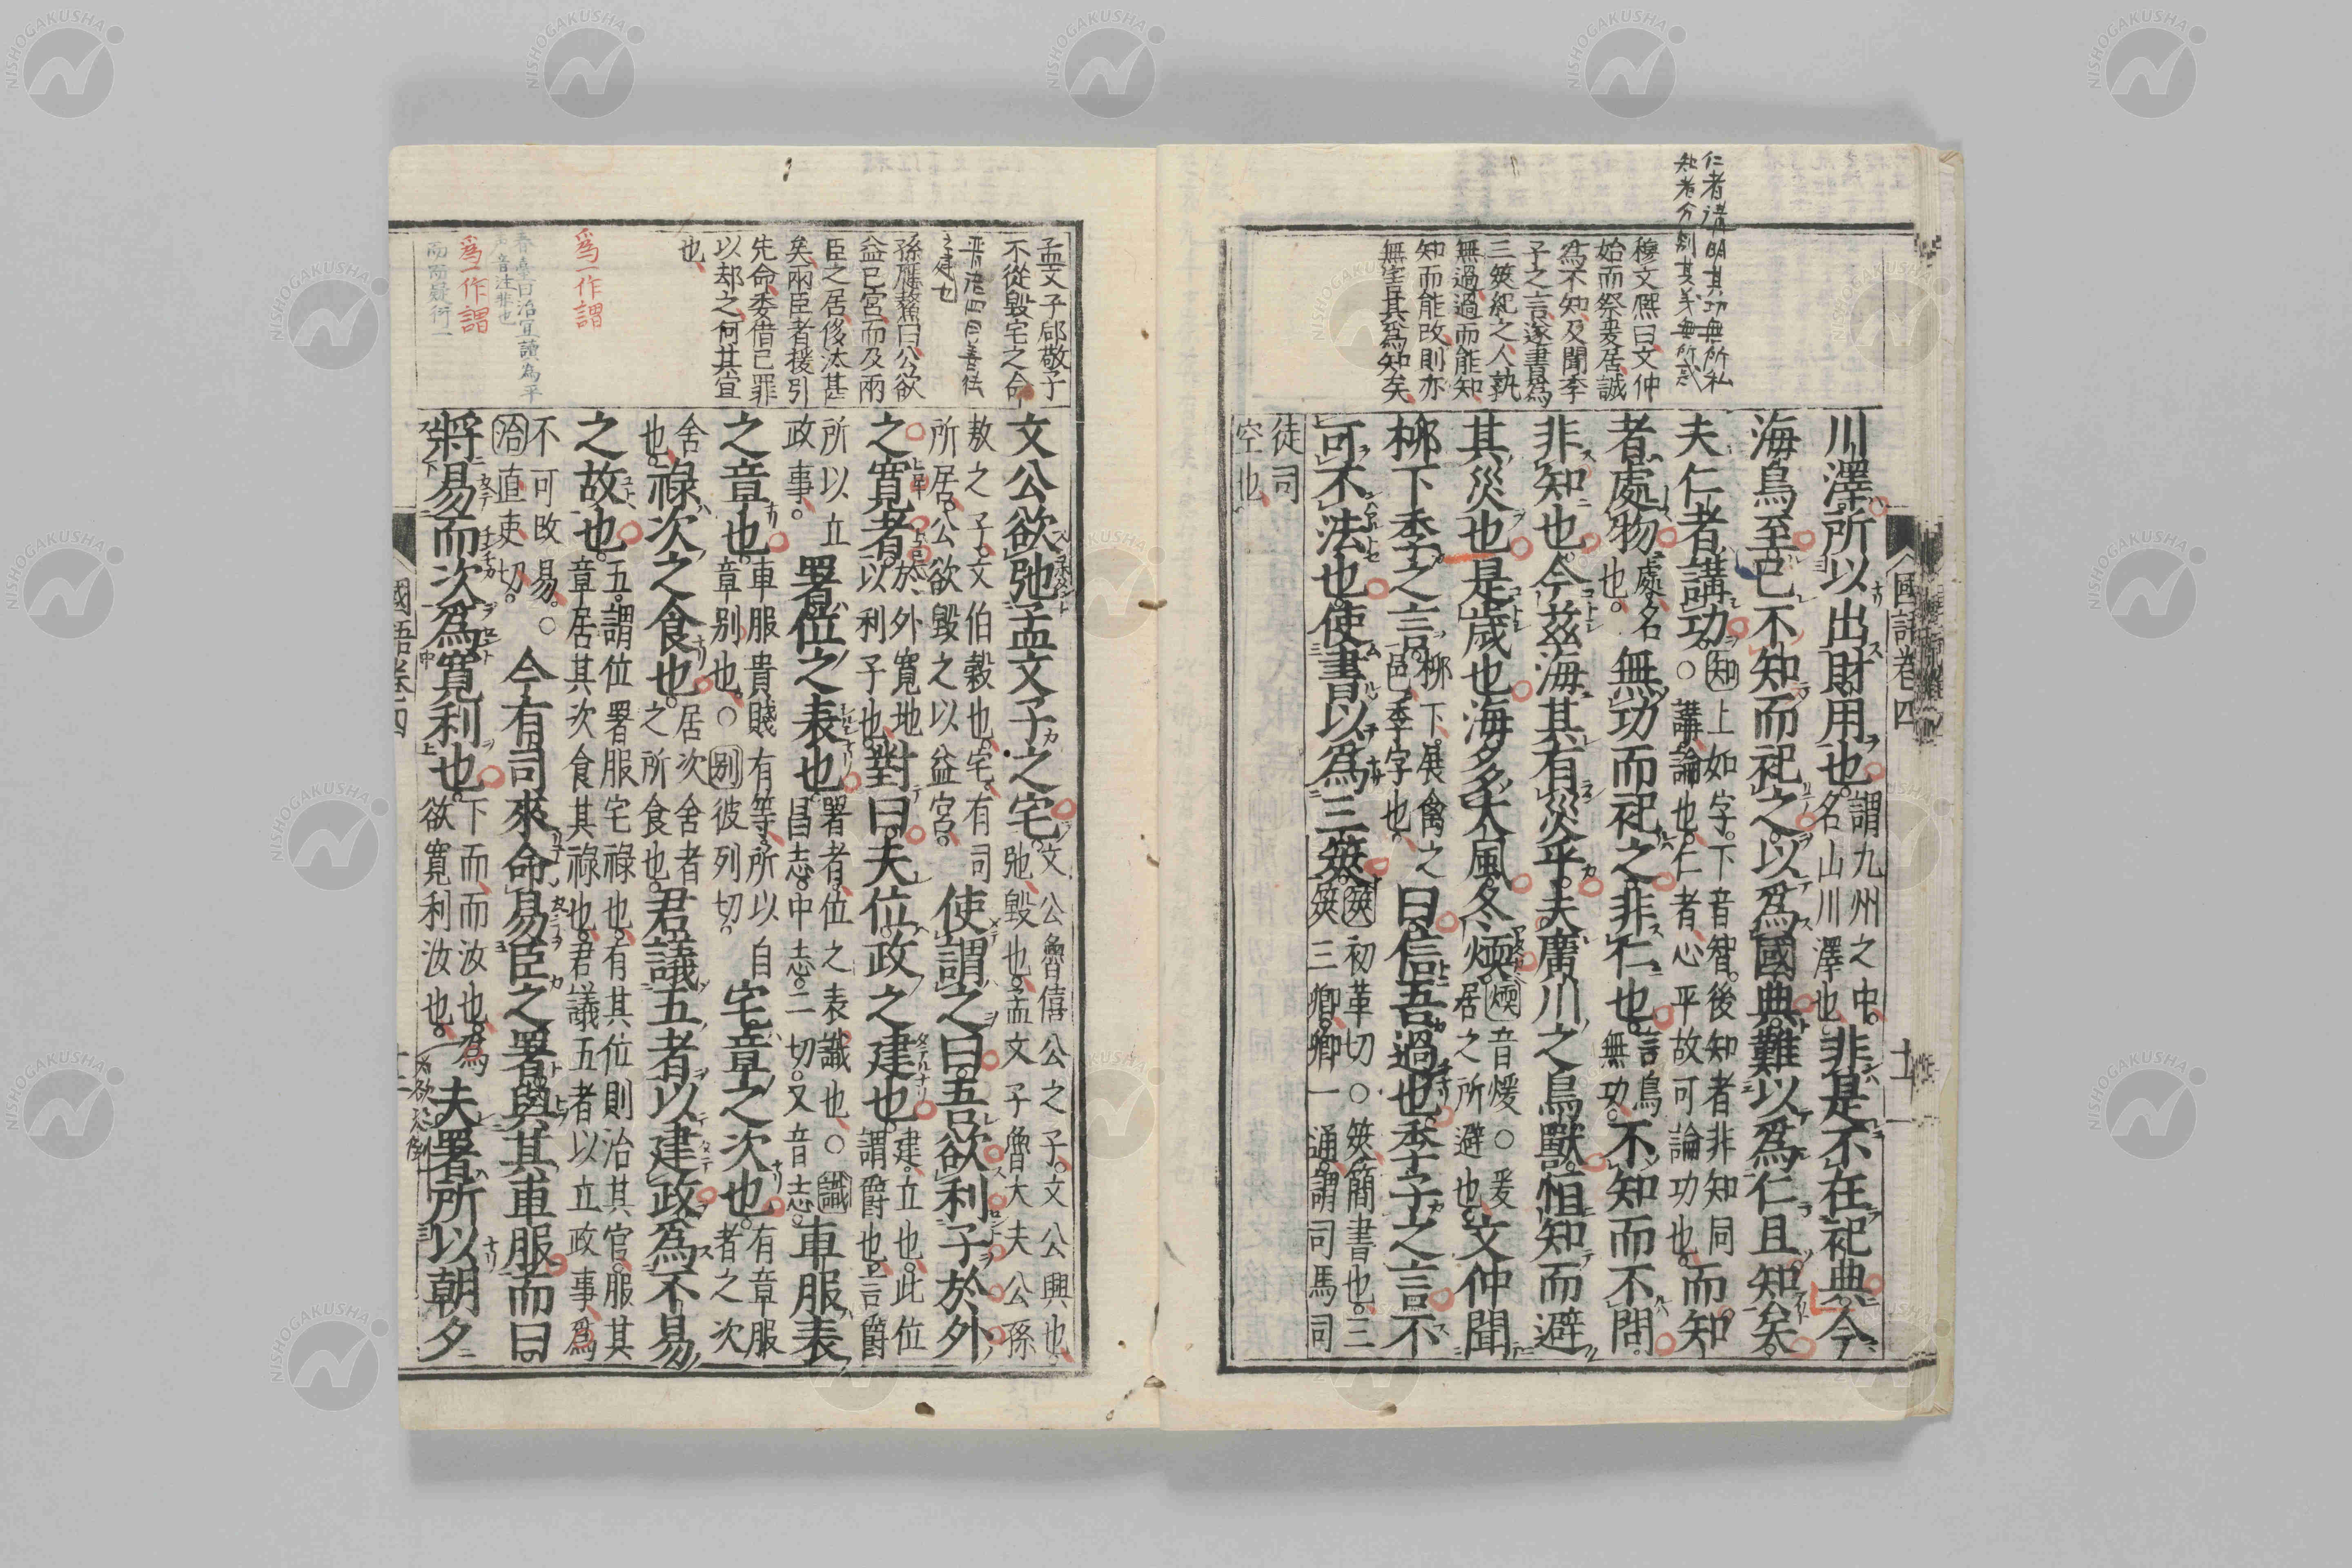 仁者講明其功無所私
知者分別其義無所惑
穆文熈曰文仲
始而祭爰居誠
為不知及聞季
子之言遂書爲
三筴紀之人孰
無過過而能知
知而能改則亦
無害其爲知矣
川澤所以出財用也謂九州之中名山川澤也非是不在祀典今
海鳥至已不知而祀之以爲國典難以爲仁且知矣
夫仁者講功知上如字下音智後知者非知同○講論也仁者心平故可論功也而知
者處物處名也無功而祀之非仁也言鳥無功不知而不問
非知也今茲海其有災乎夫廣川之鳥獸恒知而避
其災也是歲也海多大風冬煖煖音煖○爰居之所避也文仲聞
柳下季之言柳下展禽之邑季字也曰信吾過也季子之言不
可不法也使書以爲三筴筴初革切○筴簡書也三筴三卿卿一通謂司馬司
徒司空也
國語卷四
十一
孟文子郈敬子
不從毀宅之命
之建也
孫應鰲曰公欲
益已宮而及兩
臣之居侈汰甚
矣兩臣者援引
先命委借已罪
以却之何其宜
也
爲一作謂
春臺曰治宜讀為平
音注非也
爲一作謂
而而疑衍一
文公欲弛孟文子之宅文公魯僖公之子文公興也弛毀也孟文子魯大夫公孫
敖之子文伯穀也宅有司所居公欲毀之以益宮使謂之曰吾欲利子於外
之寬者於外寬地以利子也對曰夫位政之建也建立也此位謂爵也言爵
所以立政事署位之表也署者位之表識也○識昌志中志二切又音志車服表
之章也車服貴賤有等所以自章別也○別彼列切宅章之次也有章服者之次
舍也祿次之食也居次舍者之所食也君議五者以建政爲不易
之故也五謂位署服宅祿也有其位則治其官服其章居其次食其祿也君議五者以立政事爲
不可改易○治直吏切今有司來命易臣之署與其車服而曰
將易而次爲寬利也下而而汝也為欲寬利汝也夫署所以朝夕
國語卷四